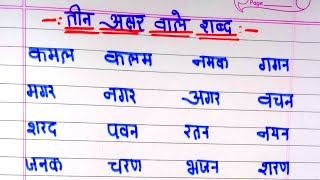 Page.
-: तीन अक्षर वाले शब्द :-
कमल कालम नमक गगन
मगर नगर अगर वचन
शरद पवन रतन नयन
जनक चरण भजन शरण